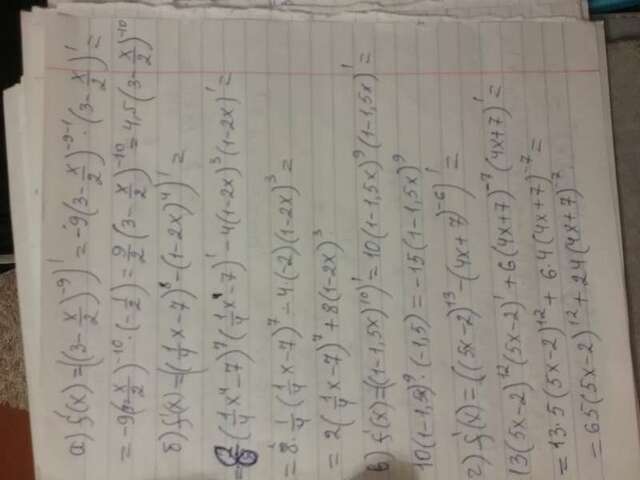 а) f'(x) = ((3 - x/2)^-9)' = -9(3 - x/2)^-9-1 · (3 - x/2)' =
= -9(3 - x/2)^-10 · (-1/2) = 9/2 (3 - x/2)^-10 = 4,5(3 - x/2)^-10
б) f'(x) = ((1/4 x - 7)^8 - (1-2x)^4)' =
= 8(1/4 x^4 - 7)^7 (1/4 x^4 - 7)' - 4(1-2x)^3 (1-2x)' =
= 8 · 1/4 (1/4 x - 7)^7 - 4 · (-2)(1-2x)^3 =
= 2(1/4 x - 7)^7 + 8(1-2x)^3
в) f'(x) = ((1-1,5x)^10)' = 10(1-1,5x)^9 (1-1,5x)' =
10(1-1,5x)^9 · (-1,5) = -15(1-1,5x)^9
г) f'(x) = ((5x-2)^13 - (4x+7)^-6)' =
13(5x-2)^12 (5x-2)' + 6(4x+7)^-7 (4x+7)' =
= 13·5(5x-2)^12 + 6·4(4x+7)^-7 =
= 65(5x-2)^12 + 24(4x+7)^-7